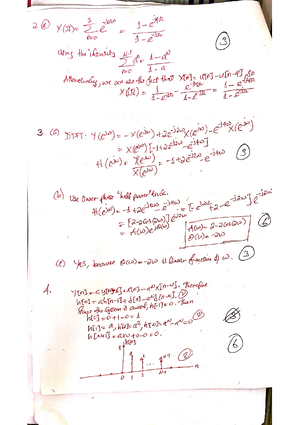 2. (a) X(Ω) = Σ_{n=0}^{3} e^{-jΩn} = (1 - e^{-j4Ω}) / (1 - e^{-jΩ})
Using the identity Σ_{n=0}^{N-1} a^n = (1 - a^N) / (1 - a)
Alternatively, we can use the fact that x[n] = u[n] - u[n-4], so
X(Ω) = 1 / (1 - e^{-jΩ}) - e^{-j4Ω} / (1 - e^{-jΩ}) = (1 - e^{-j4Ω}) / (1 - e^{-jΩ})
3
3. (a) DTFT: Y(e^{jω}) = -X(e^{jω}) + 2e^{-j2ω} X(e^{jω}) - e^{-j4ω} X(e^{jω})
= X(e^{jω}) [-1 + 2e^{-j2ω} - e^{-j4ω}]
H(e^{jω}) = Y(e^{jω}) / X(e^{jω}) = -1 + 2e^{-j2ω} - e^{-j4ω}
3
(b) Use linear phase "half power" trick.
H(e^{jω}) = -1 + 2e^{-j2ω} - e^{-j4ω} = [-e^{j2ω} + 2 - e^{-j2ω}] e^{-j2ω}
= [2 - 2cos(2ω)] e^{-j2ω}
= A(ω) e^{jθ(ω)}
A(ω) = 2 - 2cos(2ω)
θ(ω) = -2ω
6
(c) Yes, because θ(ω) = -2ω is linear function of ω.
3
4. y[n] = a y[n-1] + x[n] - a^N x[n-N]. Therefore
h[n] = a h[n-1] + δ[n] - a^N δ[n-N].
Since the system is causal, h[-1] = 0. Then
h[0] = 0 + 1 - 0 = 1
h[1] = a, h[2] = a^2,
h[N+1] = a×0 + 0 - 0 = 0.
6
h[n]
0 1 2
n